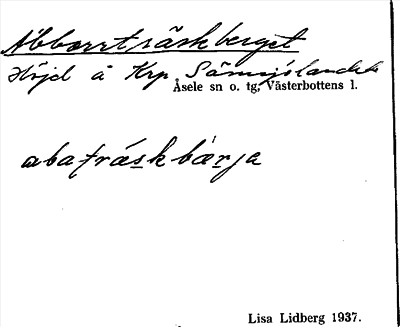 Abborrträskberget
Höjd å Krp Särnsjölandet
Åsele sn o. tg, Västerbottens l.
abaträskbærja
Lisa Lidberg 1937.